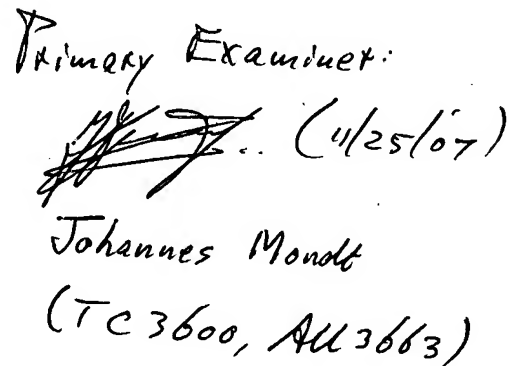 Primary Examiner:
(11/25/07)
Johannes Mondt
(TC3600, AU3663)